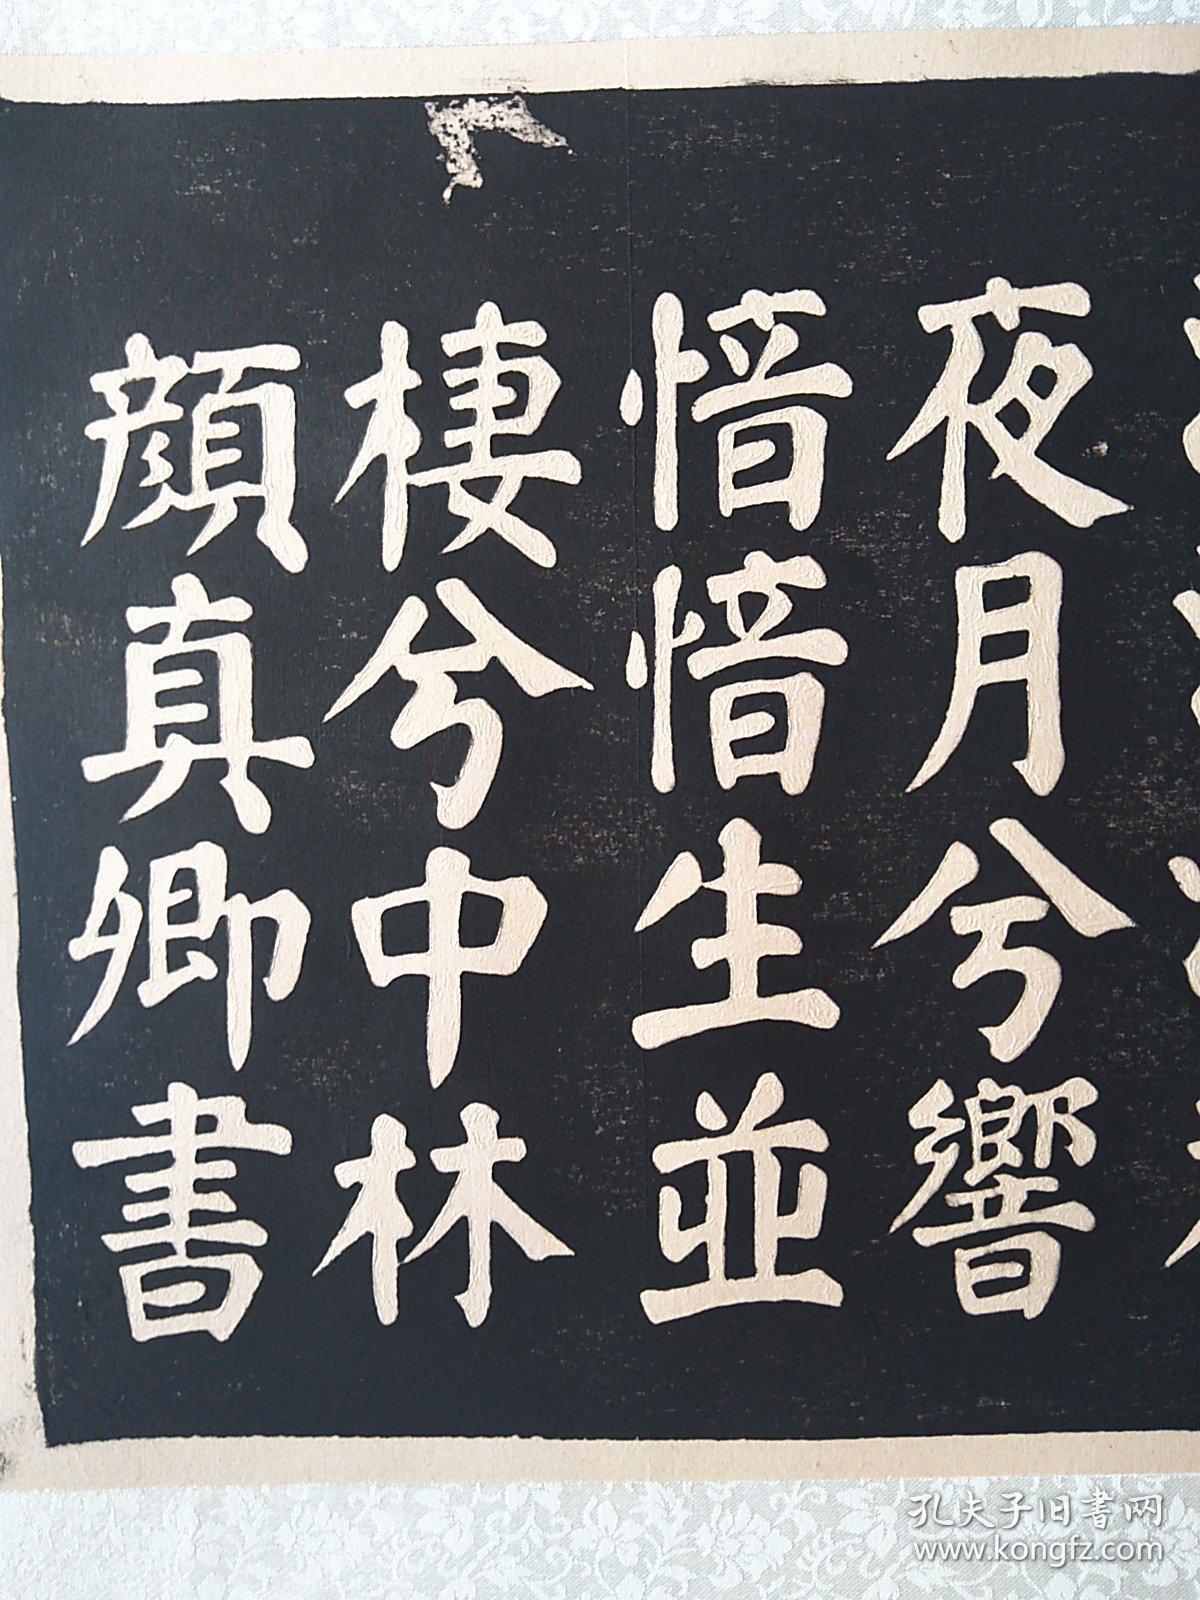 夜月兮響
愔愔生並
棲兮中林
顏真卿書
孔夫子旧書网
www.kongfz.com